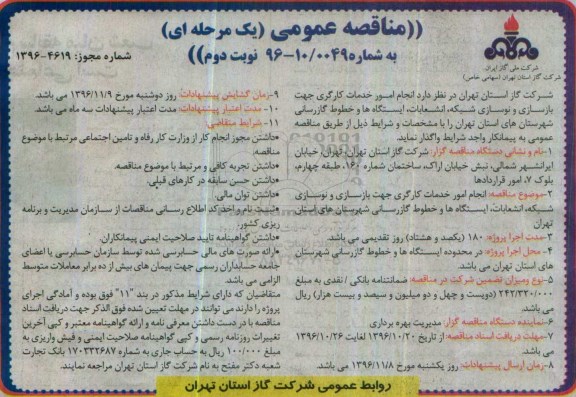 ((مناقصه عمومی (یک مرحله ای)
به شماره ۹۶-۱۰/۰۰۴۹ نوبت دوم))
شماره مجوز: ۴۶۱۹-۱۳۹۶
شرکت ملی گاز ایران
شرکت گاز استان تهران (سهامی خاص)
شرکت گاز استان تهران در نظر دارد انجام امور خدمات کارگری جهت
بازسازی و نوسازی شبکه، انشعابات، ایستگاه ها و خطوط گازرسانی
شهرستان های استان تهران را با مشخصات و شرایط ذیل از طریق مناقصه
عمومی به پیمانکار واجد شرایط واگذار نماید.
۱-نام و نشانی دستگاه مناقصه گزار: شرکت گاز استان تهران، تهران، خیابان
ایرانشهر شمالی، نبش خیابان اراک، ساختمان شماره ۱۶۰، طبقه چهارم،
بلوک ۷، امور قراردادها
۲-موضوع مناقصه: انجام امور خدمات کارگری جهت بازسازی و نوسازی
شبکه، انشعابات، ایستگاه ها و خطوط گازرسانی شهرستان های استان
تهران
۳-مدت اجرا پروژه: ۱۸۰ (یکصد و هشتاد) روز تقدیمی می باشد.
۴- محل اجرا پروژه: در محدوده ایستگاه ها و خطوط گازرسانی شهرستان
های استان تهران می باشد.
۵-نوع ومیزان تضمین شرکت در مناقصه: ضمانتنامه بانکی / نقدی به مبلغ
۲۴۲/۳۲۰/۰۰۰ (دویست و چهل و دو میلیون و سیصد و بیست هزار) ریال
می باشد.
۶-نماینده دستگاه مناقصه گزار: مدیریت بهره برداری
۷-مهلت دریافت اسناد مناقصه: از تاریخ ۱۳۹۶/۱۰/۲۰ لغایت ۱۳۹۶/۱۰/۲۶
۸-زمان ارسال پیشنهادات: روز یکشنبه مورخ ۱۳۹۶/۱۱/۸ می باشد.
۹-زمان گشایش پیشنهادات: روز دوشنبه مورخ ۱۳۹۶/۱۱/۹ می باشد.
۱۰-مدت اعتبار پیشنهادات: مدت اعتبار پیشنهادات سه ماه می باشد.
۱۱- شرایط متقاضی:
*داشتن مجوز انجام کار از وزارت کار رفاه و تامین اجتماعی مرتبط با موضوع
مناقصه.
*داشتن تجربه کافی و مرتبط با موضوع مناقصه.
*داشتن حسن سابقه در کارهای قبلی.
*داشتن توان مالی.
*ثبت نام و اخذ کد اطلاع رسانی مناقصات از سازمان مدیریت و برنامه
ریزی کشور.
*داشتن گواهینامه تایید صلاحیت ایمنی پیمانکاران.
*ارائه صورت های مالی حسابرسی شده توسط سازمان حسابرسی یا اعضای
جامعه حسابداران رسمی جهت پیمان های بیش از ده برابر معاملات متوسط
الزامی می باشد.
متقاضیان که دارای شرایط مذکور در بند "۱۱" فوق بوده و آمادگی اجرای
پروژه را دارند می توانند در مهلت تعیین شده فوق الذکر جهت دریافت اسناد
مناقصه با در دست داشتن معرفی نامه و ارائه گواهینامه معتبر و کپی آخرین
تغییرات روزنامه رسمی و کپی گواهینامه صلاحیت ایمنی و فیش واریزی به
مبلغ ۱۰۰/۰۰۰ ریال به حساب جاری به شماره ۱۷۰۳۳۲۶۸۷ بانک تجارت
شعبه دکتر مفتح به نام شرکت گاز استان تهران مراجعه نمایند.
روابط عمومی شرکت گاز استان تهران